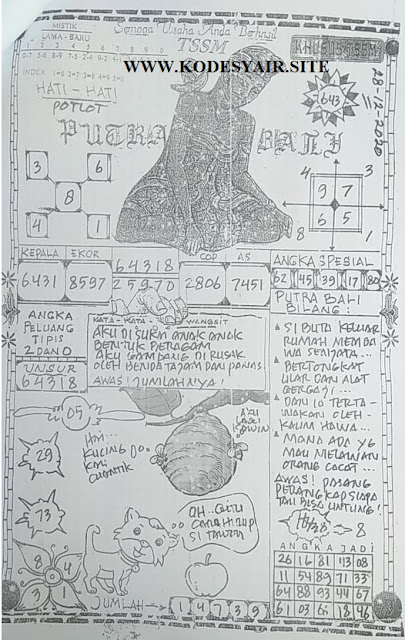 MISTIK
LAMA - BARU
Semoga Usaha Anda Berhasil
TSSM
KHUSUS TSSM
WWW.KODESYAIR.SITE
INDEX
HATI - HATI
POTLOT
643
20-12-2020
PUTRA BALI
3 6
8
4 1
4 3
9 7
6 5
8 1
KEPALA EKOR
6431 8597
64318
25970
COP AS
2806 7451
ANGKA SPESIAL
62 45 39 17 80
ANGKA
PELUANG
TIPIS
2D AN D
UNSUR
64318
KATA - KATA - WANGSIT
AKU DI SUKAI ANAK ANAK
BENTUK BERAGAM
AKU GAMPANG DI RUSAK
OLEH BENDA TAJAM DAN PANAS.
AWAS! JUMLAHNYA!
PUTRA BALI
BILANG:
SI BUTA KELUAR
RUMAH MEMBA
WA SENJATA...
BERTONGKAT
ULAR DAN ALAT
GERGAJI...
DAN IA TERTA-
WAKAN OLEH -
KAUM HAWA...
MANA ADA YG
MAU MELAWAN
ORANG CACAT...
AWAS! PASANG
PERANGKAP SIAPA
TAU BISA UNTUNG!
= 8
05
29
73
HAI...
KUCING
KMI
CHANTIK
AKU
LAGI
SI TAWON
8 4
3 1
JUMLAH → 1 4 7 3 9
ANGKA JADI
26 16 81 43 08
11 54 89 71 33
64 88 93 44 67
61 03 66 18 46